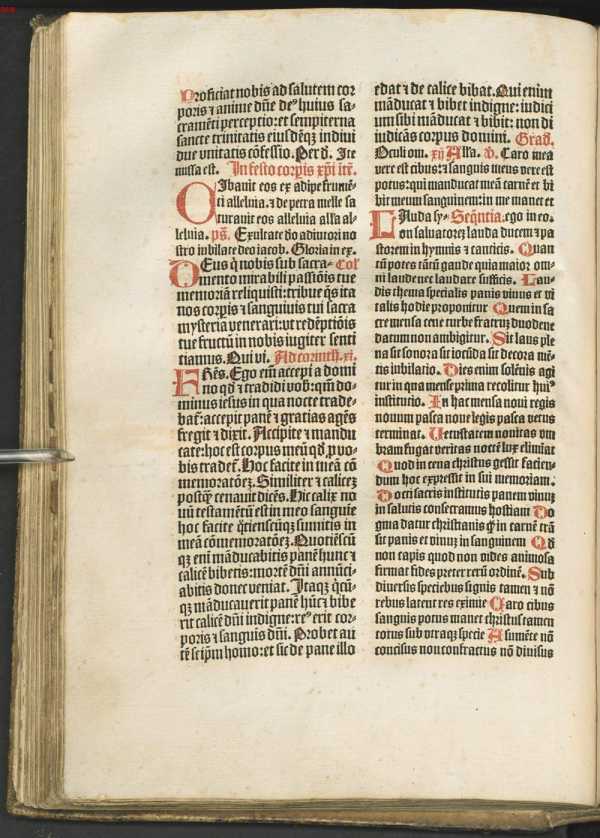 Proficiat nobis ad salutem cor
poris ⁊ anime dñe de⁹ huius sa-
cramẽti perceptio: et sempiterna
sancte trinitatis eiusdẽqꝫ indiui
due vnitatis cõfessio. Per d. Ite
missa est. In festo corpis xp̃i itẽ.
Cibauit eos ex adipe frumẽ-
ti alleluia. ⁊ de petra melle sa
turauit eos alleluia alľa al-
leluia. ps̃. Exultate do adiutori no
stro iubilate deo iacob. Gloria in ex.
Deus q̇ nobis sub sacra- Col
mento mirabili passiõis tue
memoriã reliquisti: tribue q̃s ita
nos corpis ⁊ sanguinis tui sacra
mysteria venerari: vt redẽptiõis
tue fructũ in nobis iugiter senti
tiamus. Qui vi. Ad corinth. xi.
Fr̃es. Ego em̃ accepi a domi
no qď ⁊ tradidi vob̃: qm̃ do-
minus iesus in qua nocte trade-
bat᷑: accepit panẽ ⁊ gratias agẽs
fregit ⁊ dixit. Accipite ⁊ mandu
cate: hoc est corpus meũ qď ꝓ vo-
bis tradet᷑. Hoc facite in meã cõ
memoratõeꝫ. Similiter ⁊ caliceꝫ
postq̃ cenauit dicẽs. Hic calix no
uũ testamẽtũ est in meo sanguie
hoc facite q̃tienscũqꝫ sumitis in
meã cõmemoratõeꝫ. Quotiẽscũ
qꝫ em̃ mãducabitis panẽ hunc ⁊
calicẽ bibetis: mortẽ dñi annũci-
abitis donec veniat. Itaqꝫ q̇cũ-
qꝫ mãducauerit panẽ hũc ꝉ bibe
rit calicẽ dñi indigne: re⁹ erit cor-
poris ⁊ sanguis dñi. Probet aũ
tẽ seip̃m homo: et sic de pane illo
edat ⁊ de calice bibat. Qui enim
mãducat ⁊ bibet indigne: iudici
um sibi mãducat ⁊ bibit: non di
iudicãs corpus domini. Grad.
Oculi om. xij Alľa. ℣. Caro mea
vere est cibus: ⁊ sanguis meus vere est
potus: qui manducat meã carnẽ et bi
bit meum sanguinem: in me manet et
Lauda sy- Seq̃ntia. ego in eo.
on saluatoreꝫ lauda ducem ⁊ pa
storem in hymnis ⁊ canticis. Quan
tũ potes tãtũ gaude quia maior om-
ni laude nec laudare sufficis. Lau-
dis thema specialis panis viuus et vi
talis hodie proponitur Quem in sa
cre mensa cene turbe fratruꝫ duodene
datum non ambigitur. Sit laus ple
na sit sonora sit iocũda sit decora mẽ-
tis iubilatio. Dies enim solẽnis agi
tur in qua mense prima recolitur hui⁹
institutio. In hac mensa noui regis
nouum pasca noue legis pasca vetus
terminat. Vetustatem nouitas vm
bram fugat veritas noctẽ lux eliminat
Quod in cena christus gessit facien-
dum hoc expressit in sui memoriam.
Docti sacris institutis panem vinuꝫ
in salutis consecramus hostiam Do
gma datur christianis q̃ in carnẽ trã
sit panis et vinuꝫ in sanguinem Qď
non capis quod non vides animosa
firmat fides preter rerũ ordinẽ. Sub
diuersis speciebus signis tamen ⁊ nõ
rebus latent res eximie Caro cibus
sanguis potus manet christus tamen
totus sub vtraqꝫ specie A sumẽte nõ
concisus non confractus nõ diuisus